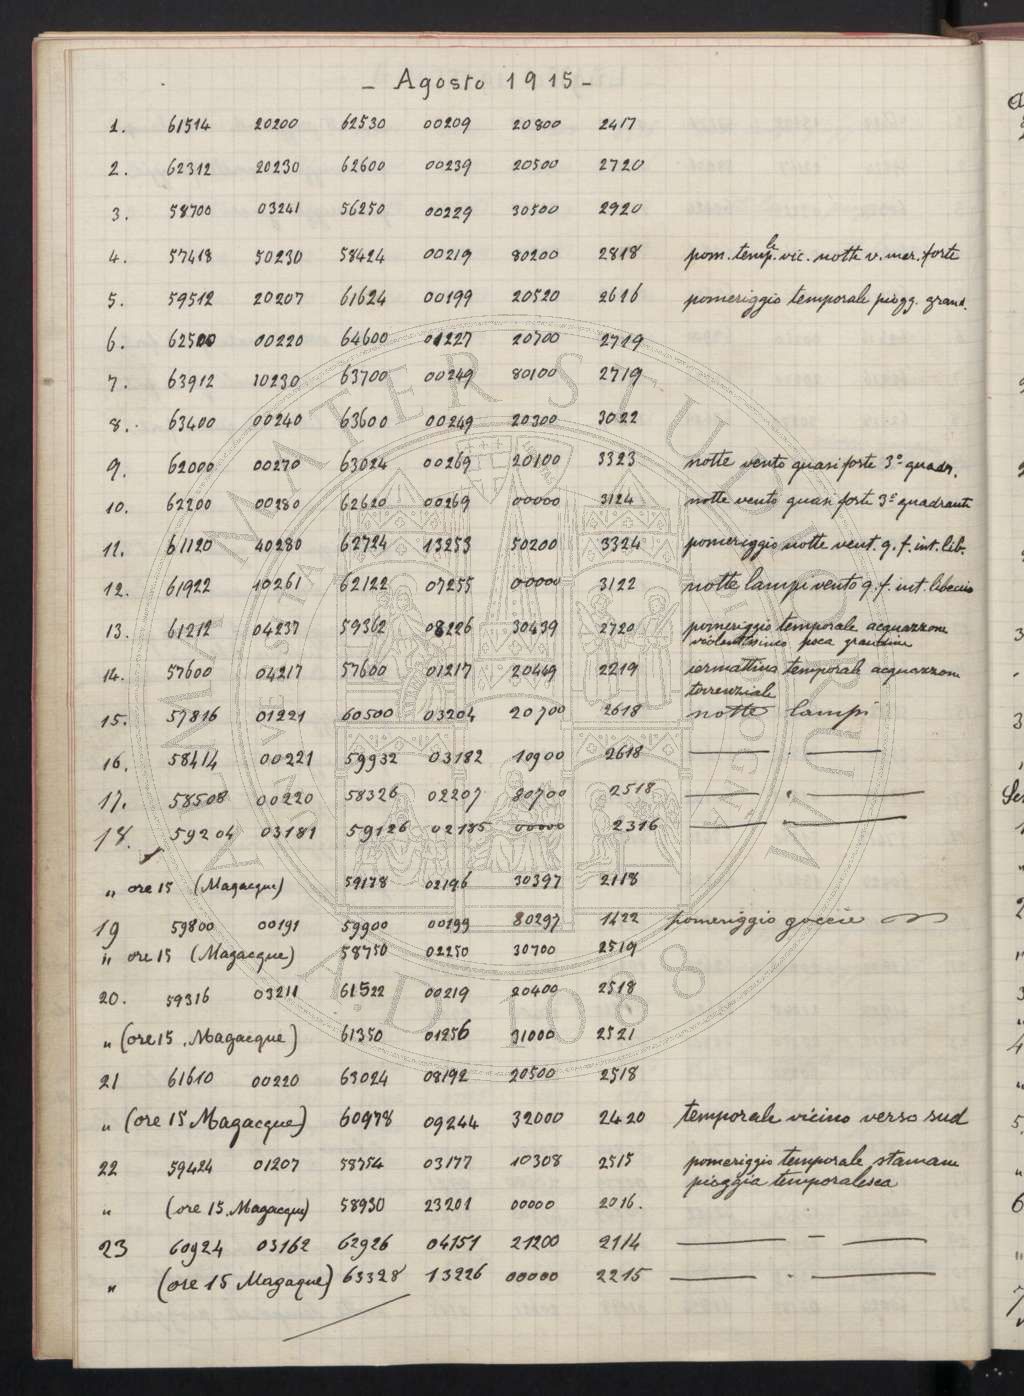 - Agosto 1915 -
1. 61514 20200 62530 00209 20800 2417
2. 62312 20230 62600 00239 20500 2720
3. 58700 03241 56250 00229 30500 2920
4. 57418 50230 58424 00219 80200 2818 pom. temp.le vic. notte v. mer. forte
5. 59512 20207 61624 00199 20520 2616 pomeriggio temporale piogg. grand.
6. 62500 00220 64600 01227 20700 2719
7. 63912 10230 63700 00249 80100 2719
8. 63400 00240 63600 00249 20300 3022
9. 62000 00270 63024 00269 20100 3323 notte vento quasi forte 3º quadr.
10. 62200 00280 62620 00269 00000 3124 notte vento quasi forte 3º quadrante
11. 61120 40280 62724 13253 50200 3324 pomeriggio notte vent. q. f. int. lib.
12. 61922 10261 62122 07255 00000 3122 notte lampi vento q. f. int. libeccio
13. 61212 04237 59362 08226 30439 2720 pomeriggio temporale acquazzone
violentissimo poca grandine
14. 57600 04217 57600 01217 20449 2219 iermattina temporale acquazzone
torrenziale
15. 57816 01221 60500 03204 20700 2618 notte lampi
16. 58414 00221 59932 03182 10900 2618 — " —
17. 58508 00220 58326 02207 80700 2518 — " —
18. 59204 03181 59126 02185 00000 2316 — " —
" ore 15 (Magacque) 59178 02196 30397 2118
19 59800 00191 59900 00199 80297 1422 pomeriggio goccie
" ore 15 (Magacque) 58750 02250 30700 2519
20. 59316 03211 61522 00219 20400 2518
" (ore 15. Magacque) 61350 01256 31000 2521
21 61610 00220 63024 08192 20500 2518
" (ore 15 Magacque) 60978 09244 32000 2420 temporale vicino verso sud
22 59424 01207 58754 03177 10308 2515 pomeriggio temporale stamane
pioggia temporalesca
" (ore 15. Magacque) 58930 23201 00000 2016.
23 60924 03162 62926 04151 21200 2114 — " —
" (ore 15 Magacque) 63328 13226 00000 2215 — " —
ALMA MATER STUDIORUM
A.D. 1088